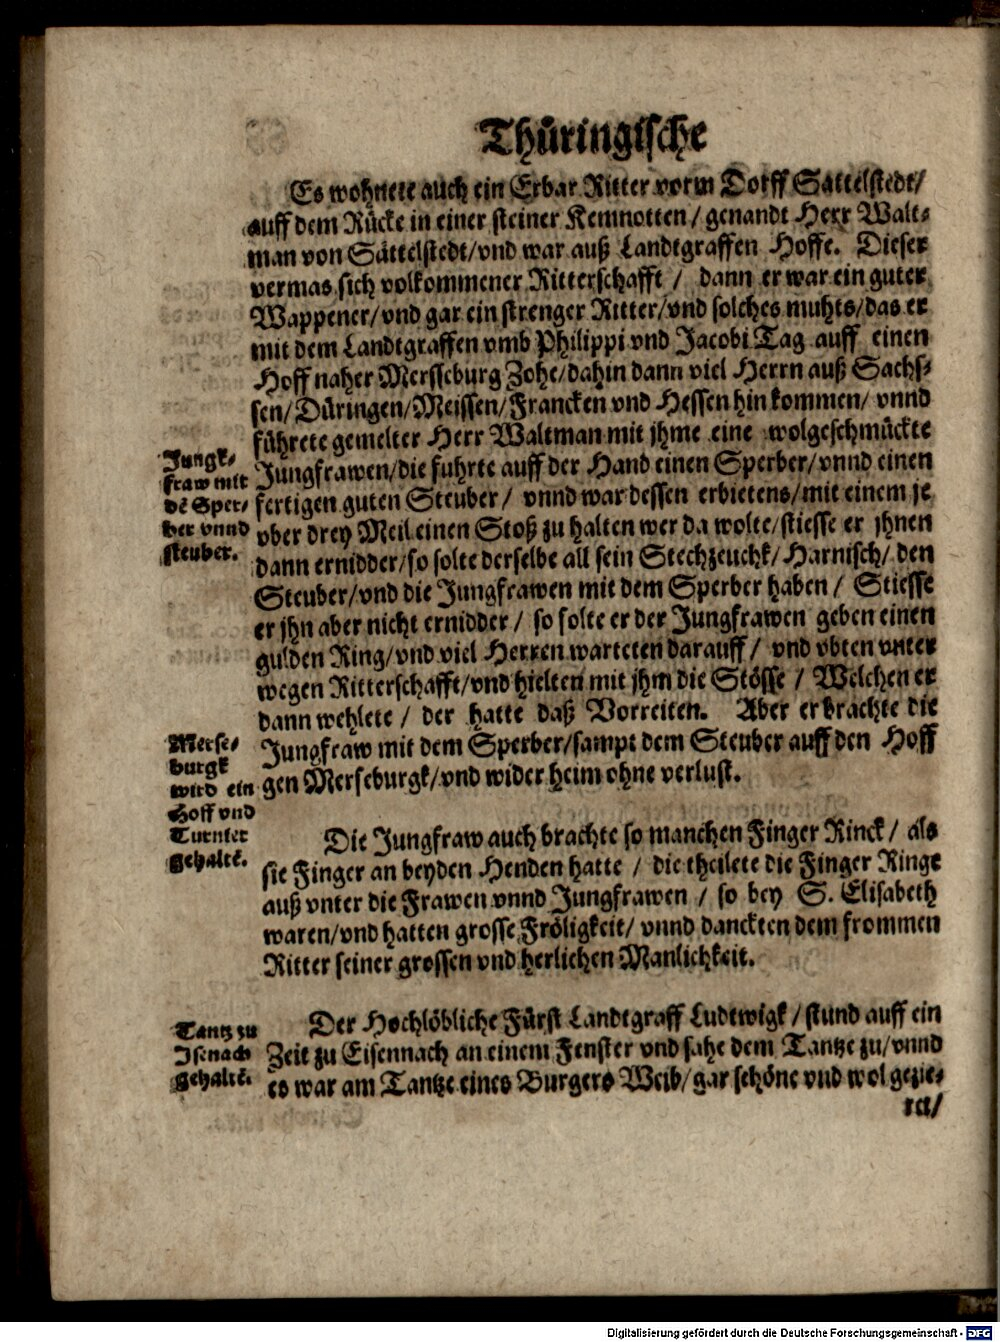 Thüringische
Es wohnete auch ein Erbar Ritter vorm Dorff Sattelstedt/
auff dem Rücke in einer steiner Kemnotten / genandt Herr Walt-
man von Sättelstedt/vnd war auß Landtgraffen Hoffe. Dieser
vermas sich volkommener Ritterschafft / dann er war ein guter
Wappener/vnd gar ein strenger Ritter/vnd solches muhts/das er
mit dem Landtgraffen vmb Philippi vnd Jacobi Tag auff einen
Hoff naher Mersseburg Zohe/dahin dann viel Herrn auß Sachs-
sen/ Düringen/Meissen/Francken vnd Hessen hin kommen/ vnnd
führete gemelter Herr Waltman mit jhme eine wolgeschmückte
Jungfrawen/die fuhrte auff der Hand einen Sperber/vnnd einen
fertigen guten Steuber / vnnd war dessen erbietens/mit einem je
vber drey Meil einen Stoß zu halten wer da wolte/stiesse er jhnen
dann ernidder/so solte derselbe all sein Stechzeuchk/ Harnisch/ den
Steuber/vnd die Jungfrawen mit dem Sperber haben / Stiesse
er jhn aber nicht ernidder / so solte er der Jungfrawen geben einen
gulden Ring/vnd viel Herren warteten darauff / vnd vbten vnter
wegen Ritterschafft/vnd hielten mit jhm die Stösse / Welchen er
dann wehlete / der hatte daß Vorreiten. Aber er brachte die
Jungfraw mit dem Sperber/sampt dem Steuber auff den Hoff
gen Merseburgk/vnd wider heim ohne verlust.
Jungk-
fraw mit
dē Sper-
ber vnnd
steuber.
Merse-
burgk
wird ein
Hoff vnd
Turnier
gehaltē.
Die Jungfraw auch brachte so manchen Finger Rinck / als
sie Finger an beyden Henden hatte / die theilete die Finger Ringe
auß vnter die Frawen vnnd Jungfrawen / so bey S. Elisabeth
waren/vnd hatten grosse Fröligkeit/ vnnd danckten dem frommen
Ritter seiner grossen vnd herlichen Manlichkeit.
Tantz zu
Isenach
gehaltē.
Der Hochlöbliche Fürst Landtgraff Ludtwigk / stund auff ein
Zeit zu Eisennach an einem Fenster vnd sahe dem Tantze zu/vnnd
es war am Tantze eines Burgers Weib/ gar schöne vnd wol gezie-
ret/
Digitalisierung gefördert durch die Deutsche Forschungsgemeinschaft - DFG